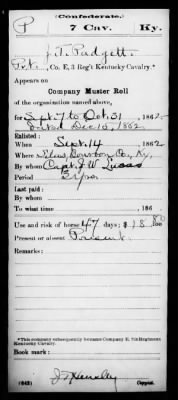 (Confederate.)
P 7 Cav. Ky.
J. T. Padgett
Pvt., Co. E, 3 Reg't Kentucky Cavalry.*
Appears on
Company Muster Roll
of the organization named above,
for Sept. 7 to Oct. 31, 1862.
dated Dec. 10, 1862
Enlisted:
When Sept. 14, 1862
Where Bourbon Co, Ky.
By whom Capt. J. W. Lucas
Period 3 yrs
Last paid:
By whom
To what time , 186 .
Use and risk of horse 47 days; $18.80
Present or absent Present
Remarks:
*This company subsequently became Company E, 7th Regiment
Kentucky Cavalry.
Book mark:
(642) Copyist.